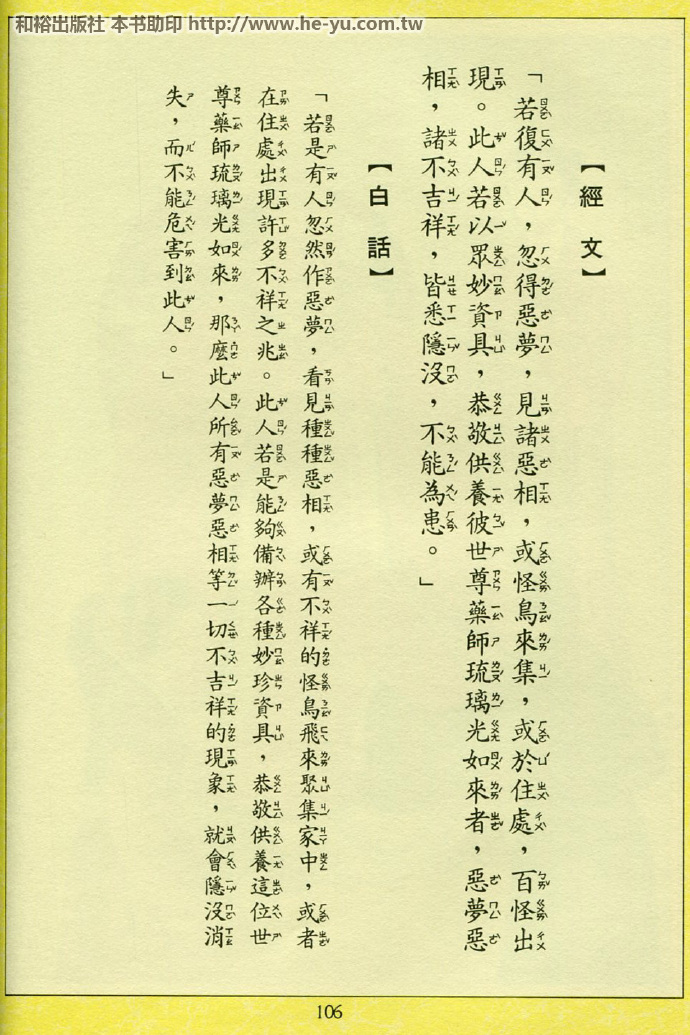 和裕出版社 本书助印 http://www.he-yu.com.tw
【經文】
「若復有人，忽得惡夢，見諸惡相，或怪鳥來集，或於住處，百怪出
現。此人若以眾妙資具，恭敬供養彼世尊藥師琉璃光如來者，惡夢惡
相，諸不吉祥，皆悉隱沒，不能為患。」
【白話】
「若是有人忽然作惡夢，看見種種惡相，或有不祥的怪鳥飛來聚集家中，或者
在住處出現許多不祥之兆。此人若是能夠備辦各種妙珍資具，恭敬供養這位世
尊藥師琉璃光如來，那麼此人所有惡夢惡相等一切不吉祥的現象，就會隱沒消
失，而不能危害到此人。」
106